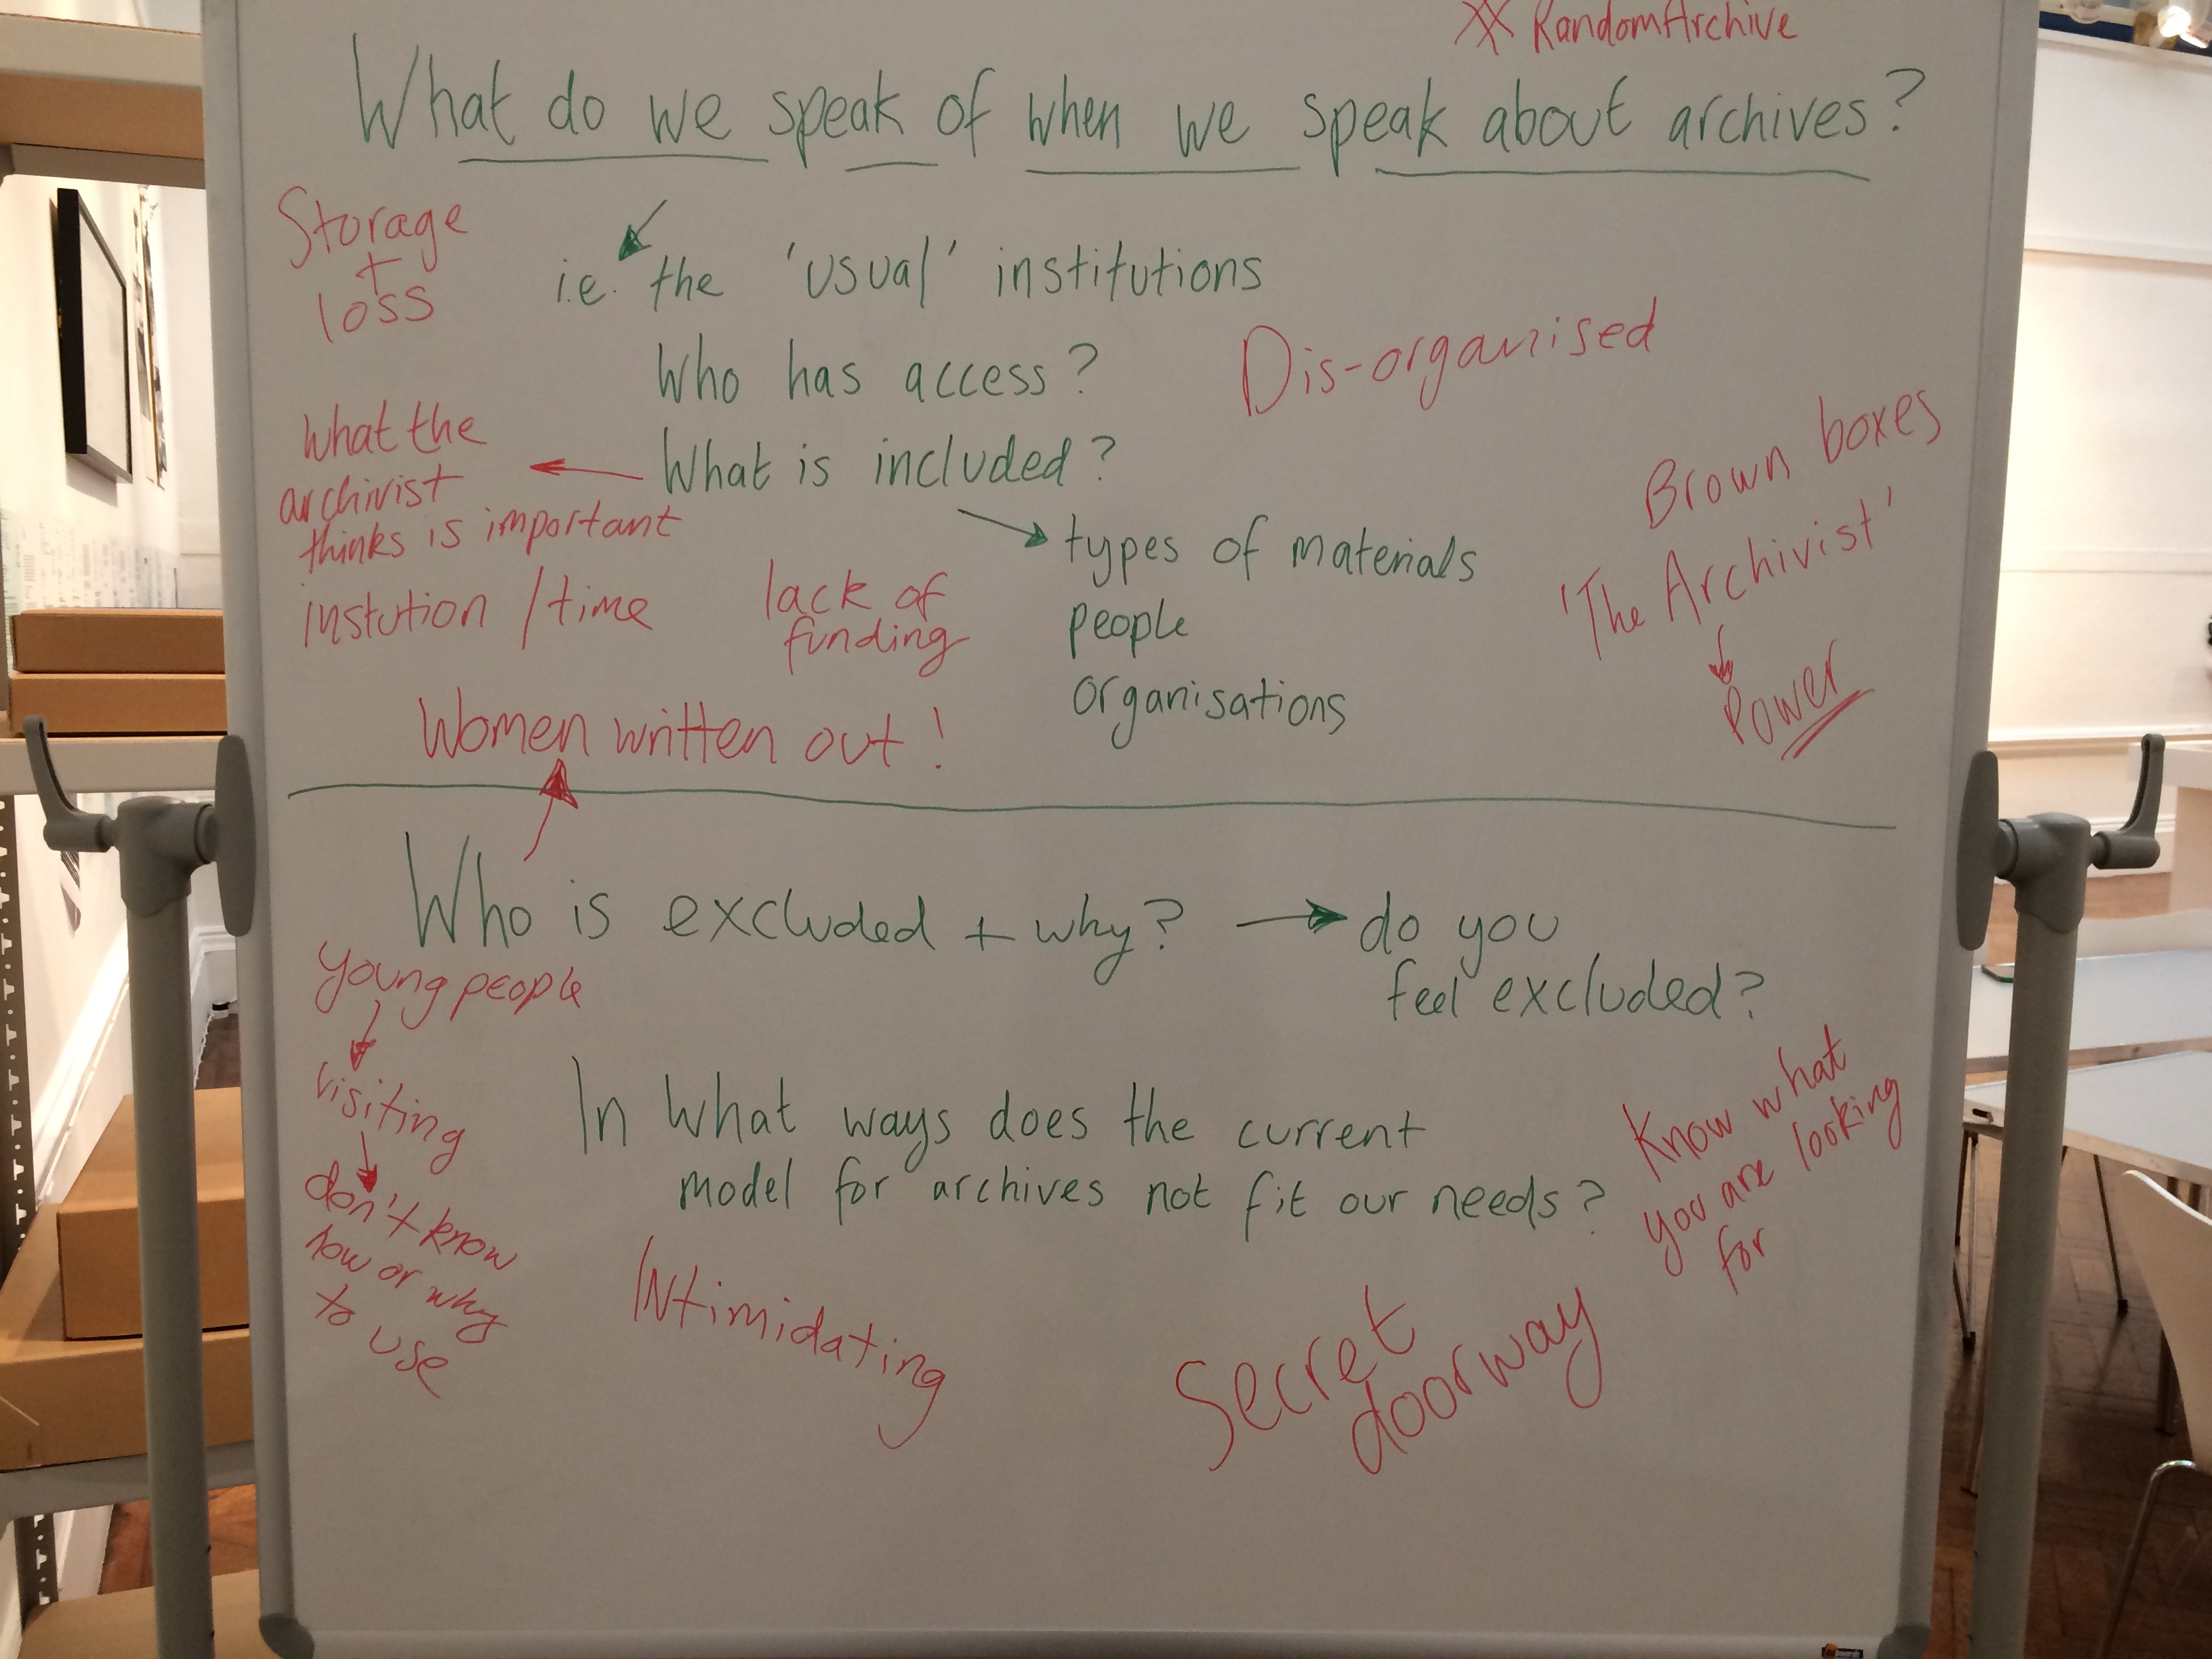 RandomArchive
What do we speak of when we speak about archives?
Storage
+
loss
i.e. the 'usual' institutions
Who has access?
Dis-organised
What is included?
What the
archivist
thinks is important
instution / time
lack of
funding
types of materials
people
organisations
Brown boxes
'The Archivist'
Power
Women written out!
Who is excluded + why?
do you
feel excluded?
young people
visiting
don't know
how or why
to use
In What ways does the current
model for archives not fit our needs?
Know what
you are looking
for
INtimidating
Secret
doorway